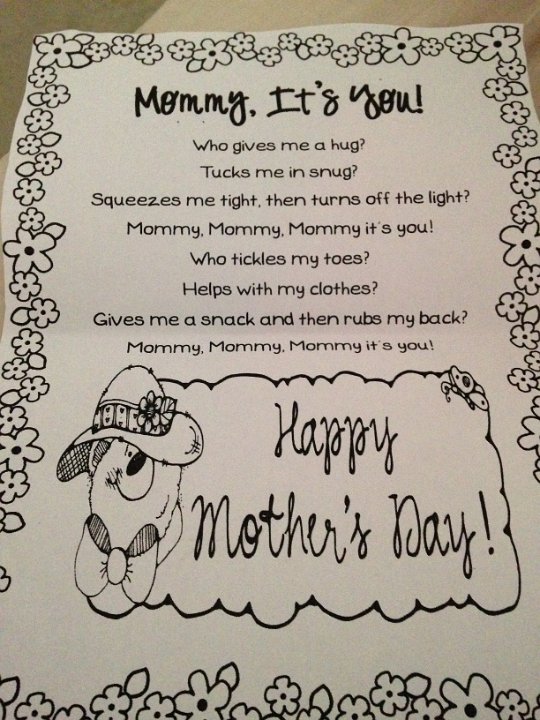 Mommy, It's You!
Who gives me a hug?
Tucks me in snug?
Squeezes me tight, then turns off the light?
Mommy, Mommy, Mommy it's you!
Who tickles my toes?
Helps with my clothes?
Gives me a snack and then rubs my back?
Mommy, Mommy, Mommy it's you!
Happy
Mother's Day!